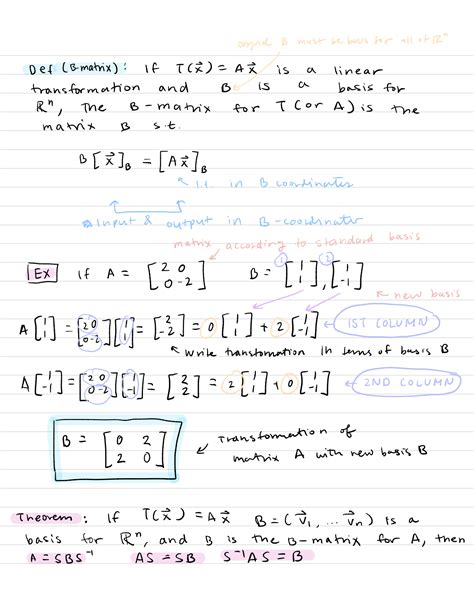 original B must be basis for all of ℝⁿ
Def (B-matrix): If T(x⃗) = Ax⃗ is a linear
transformation and B is a basis for
ℝⁿ, The B-matrix for T (or A) is the
matrix B s.t.
B[x⃗]_B = [Ax⃗]_B
l.t. in B coordinates
Input & output in B-coordinates
matrix according to standard basis
Ex If A = [2 0; 0 -2] B = [1; 1], [1; -1]
① ②
new basis
A[1; 1] = [2 0; 0 -2][1; 1] = [2; -2] = 0[1; 1] + 2[1; -1] ← 1ST COLUMN
write transformation in terms of basis B
A[1; -1] = [2 0; 0 -2][1; -1] = [2; 2] = 2[1; 1] + 0[1; -1] ← 2ND COLUMN
B = [0 2; 2 0] ← Transformation of
matrix A with new basis B
Theorem: If T(x⃗) = Ax⃗ B = (v⃗₁, ... v⃗ₙ) is a
basis for ℝⁿ, and B is the B-matrix for A, then
A = SBS⁻¹ AS = SB S⁻¹AS = B